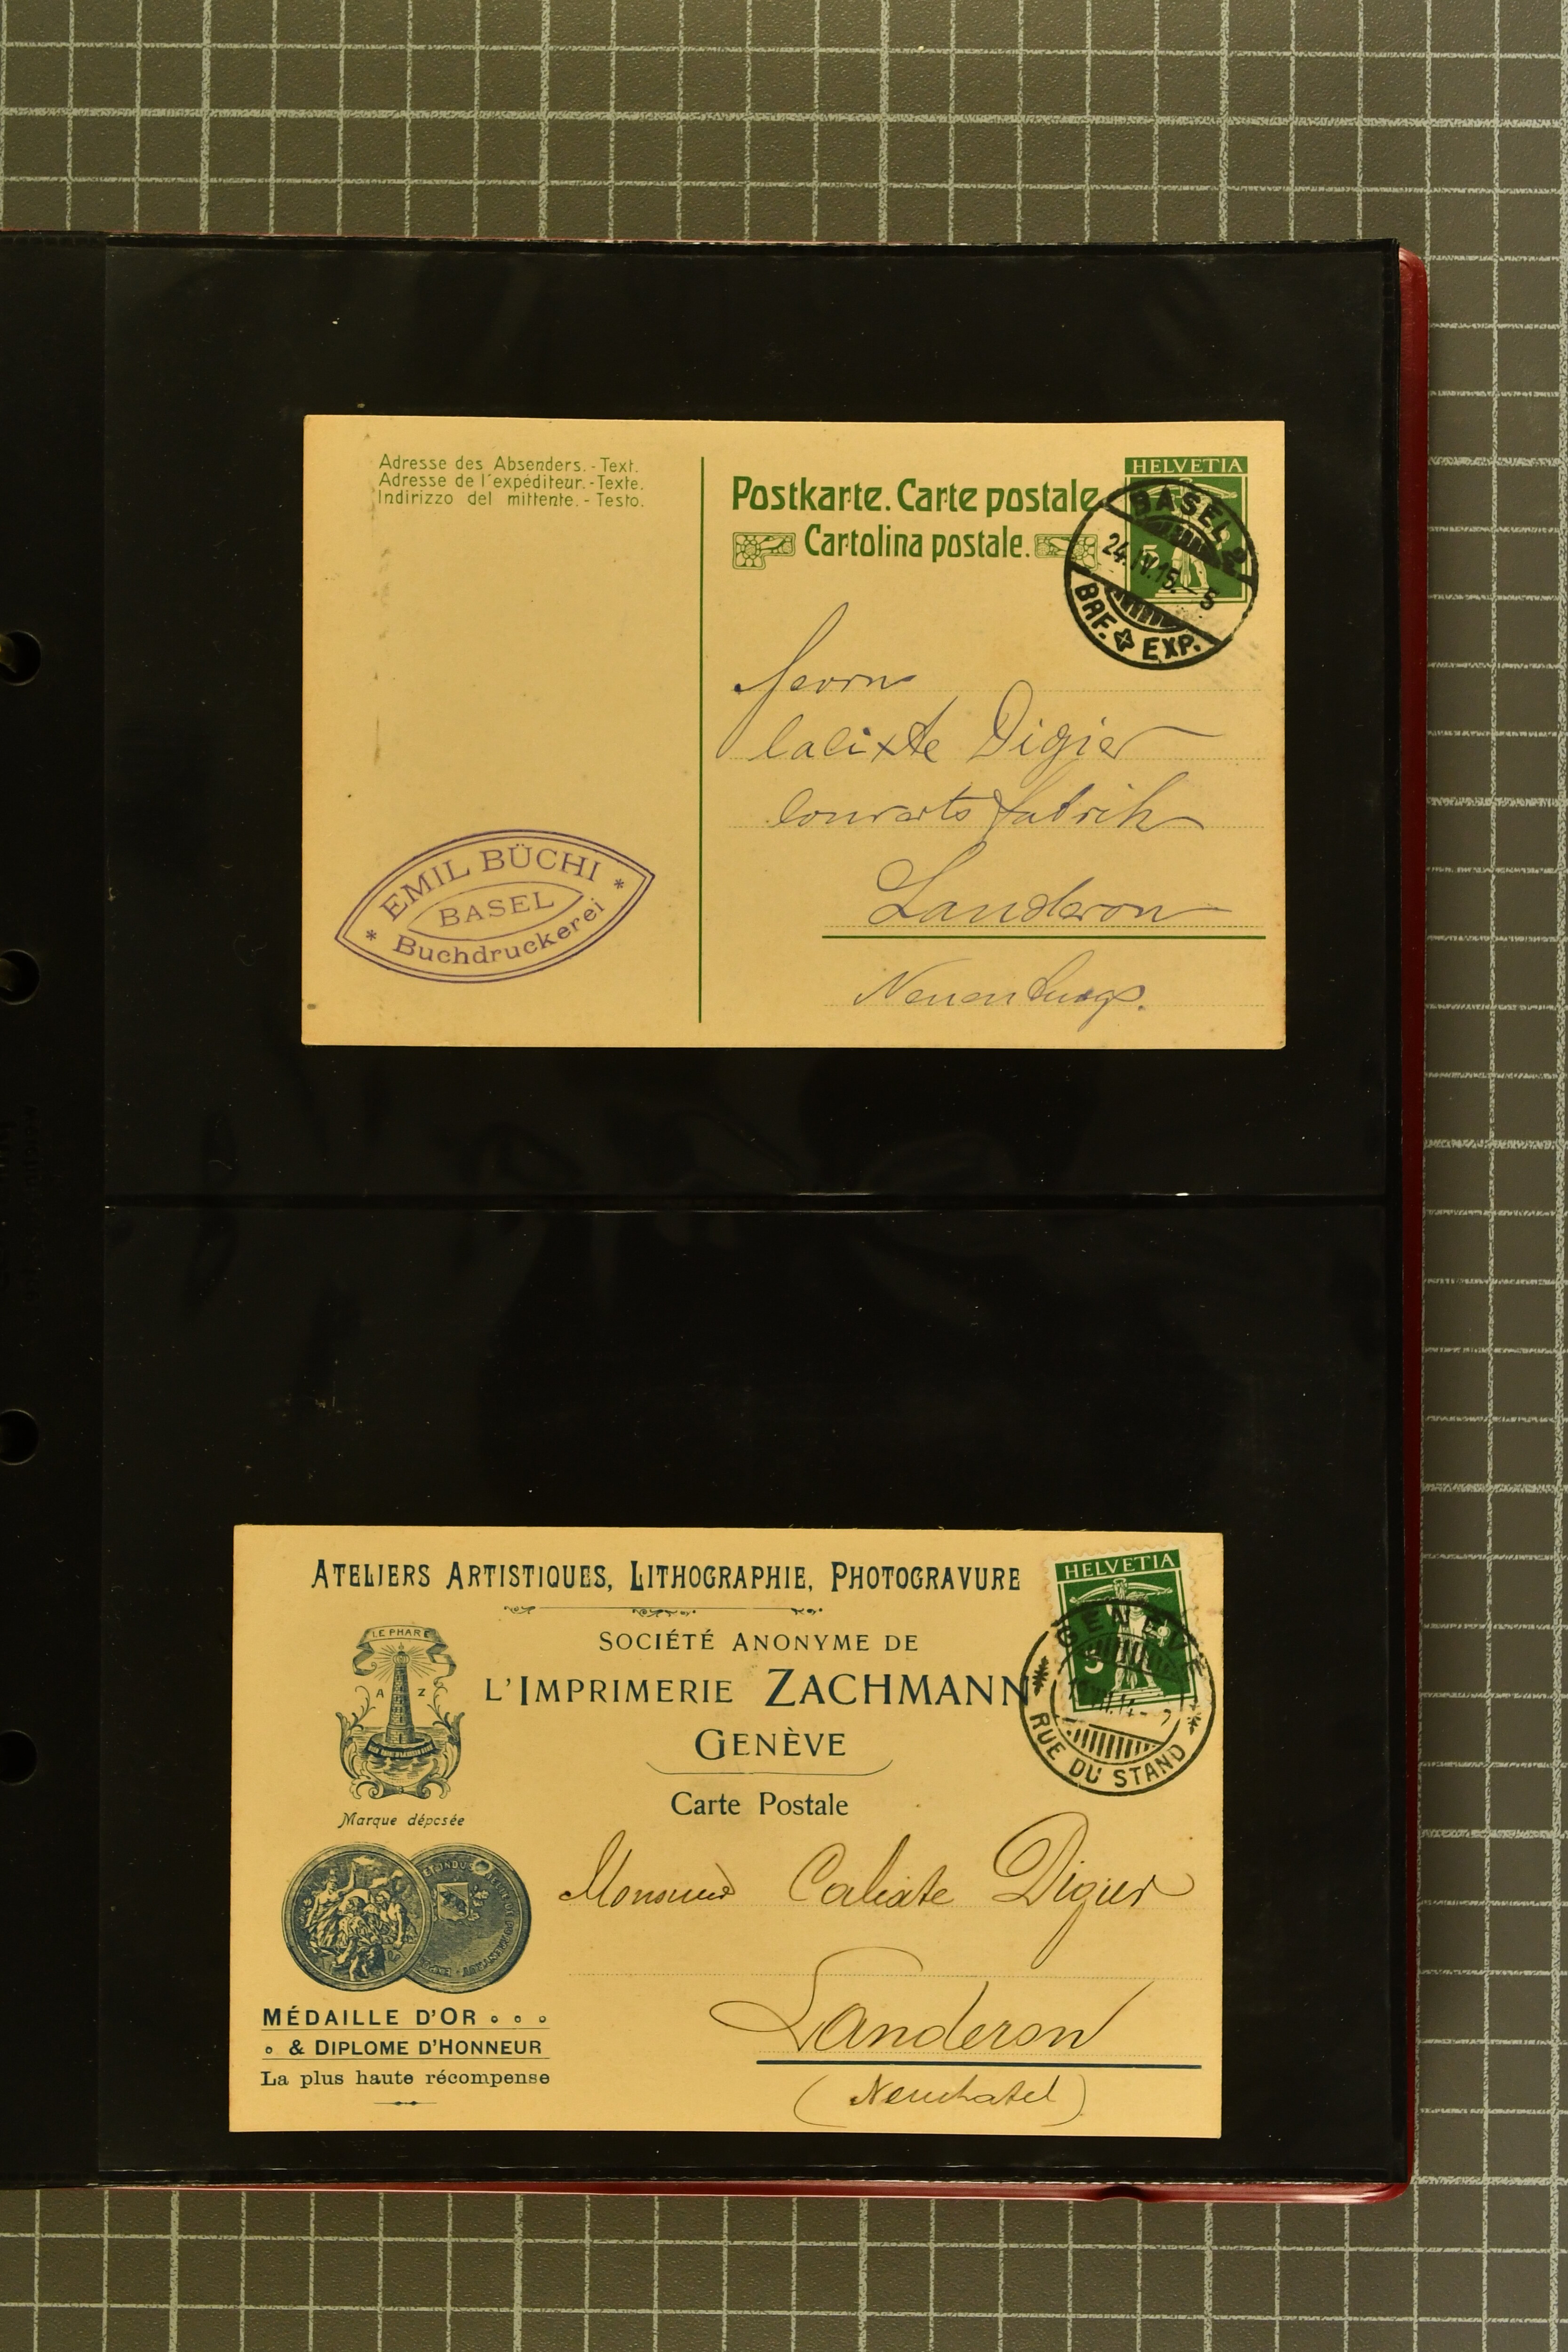 Adresse des Absenders. - Text.
Adresse de l'expéditeur. - Texte.
Indirizzo del mittente. - Testo.
Postkarte. Carte postale
Cartolina postale.
HELVETIA
5
BASEL 2
24.IV.15.-5
BRF. EXP.
Herrn
Calixte Digier
Couverts fabrik
Landeron
Neuenburg.
* EMIL BÜCHI *
BASEL
Buchdruckerei
ATELIERS ARTISTIQUES, LITHOGRAPHIE, PHOTOGRAVURE
SOCIÉTÉ ANONYME DE
L'IMPRIMERIE ZACHMANN
GENÈVE
Carte Postale
HELVETIA
5
GENÈVE
RUE DU STAND
LE PHARE
A Z
Marque déposée
Monsieur Calixte Digier
Landeron
(Neuchatel)
MÉDAILLE D'OR
& DIPLOME D'HONNEUR
La plus haute récompense